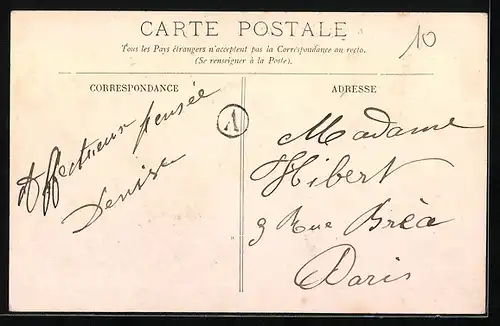 CARTE POSTALE
Tous les Pays étrangers n'acceptent pas la Correspondance au recto.
(Se renseigner à la Poste).
10
CORRESPONDANCE
Affectueuse pensée
Denise
A
ADRESSE
Madame
Hibert
9 Rue Bréa
Paris